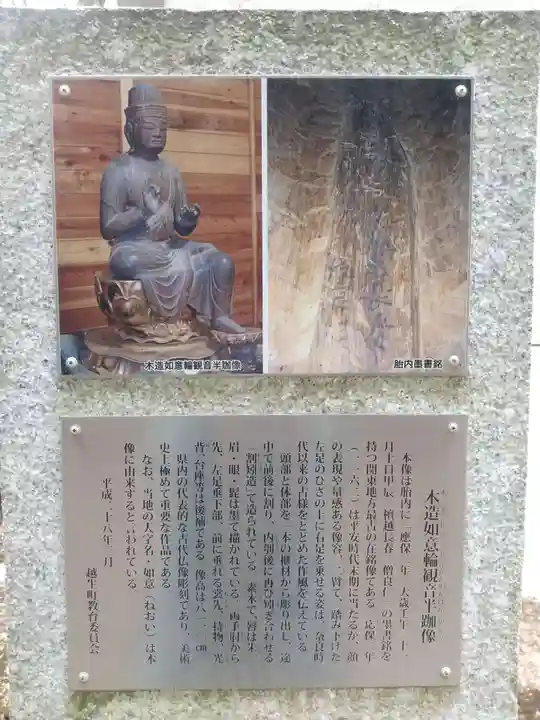 木造如意輪観音半跏像
胎内墨書銘
木造如意輪観音半跏像
本像は胎内に「應保二年 大歳壬午 十一
月十日甲辰 檀越長春 僧良仁」の墨書銘を
持つ関東地方最古の在銘像である 応保二年
（一一六二）は平安時代末期に当たるが、顔
の表現や量感ある像容、二臂で、踏み下げた
左足のひざの上に右足を乗せる姿は、奈良時
代以来の古様をとどめた作風を伝えている
頭部と体部を一本の榧材から彫り出し、途
中で前後に割り、内刳後に再び矧ぎ合わせる
「割矧造」で造られている 素木で、唇は朱
眉・眼・髭は墨で描かれている 両手肘から
先、左足垂下部、前に垂れる裳先、持物、光
背、台座等は後補である 像高は八一 ㎝
県内の代表的な古代仏像彫刻であり、美術
史上極めて重要な作品である
なお、当地の大字名・如意（ねおい）は本
像に由来するといわれている
平成二十八年三月
越生町教育委員会